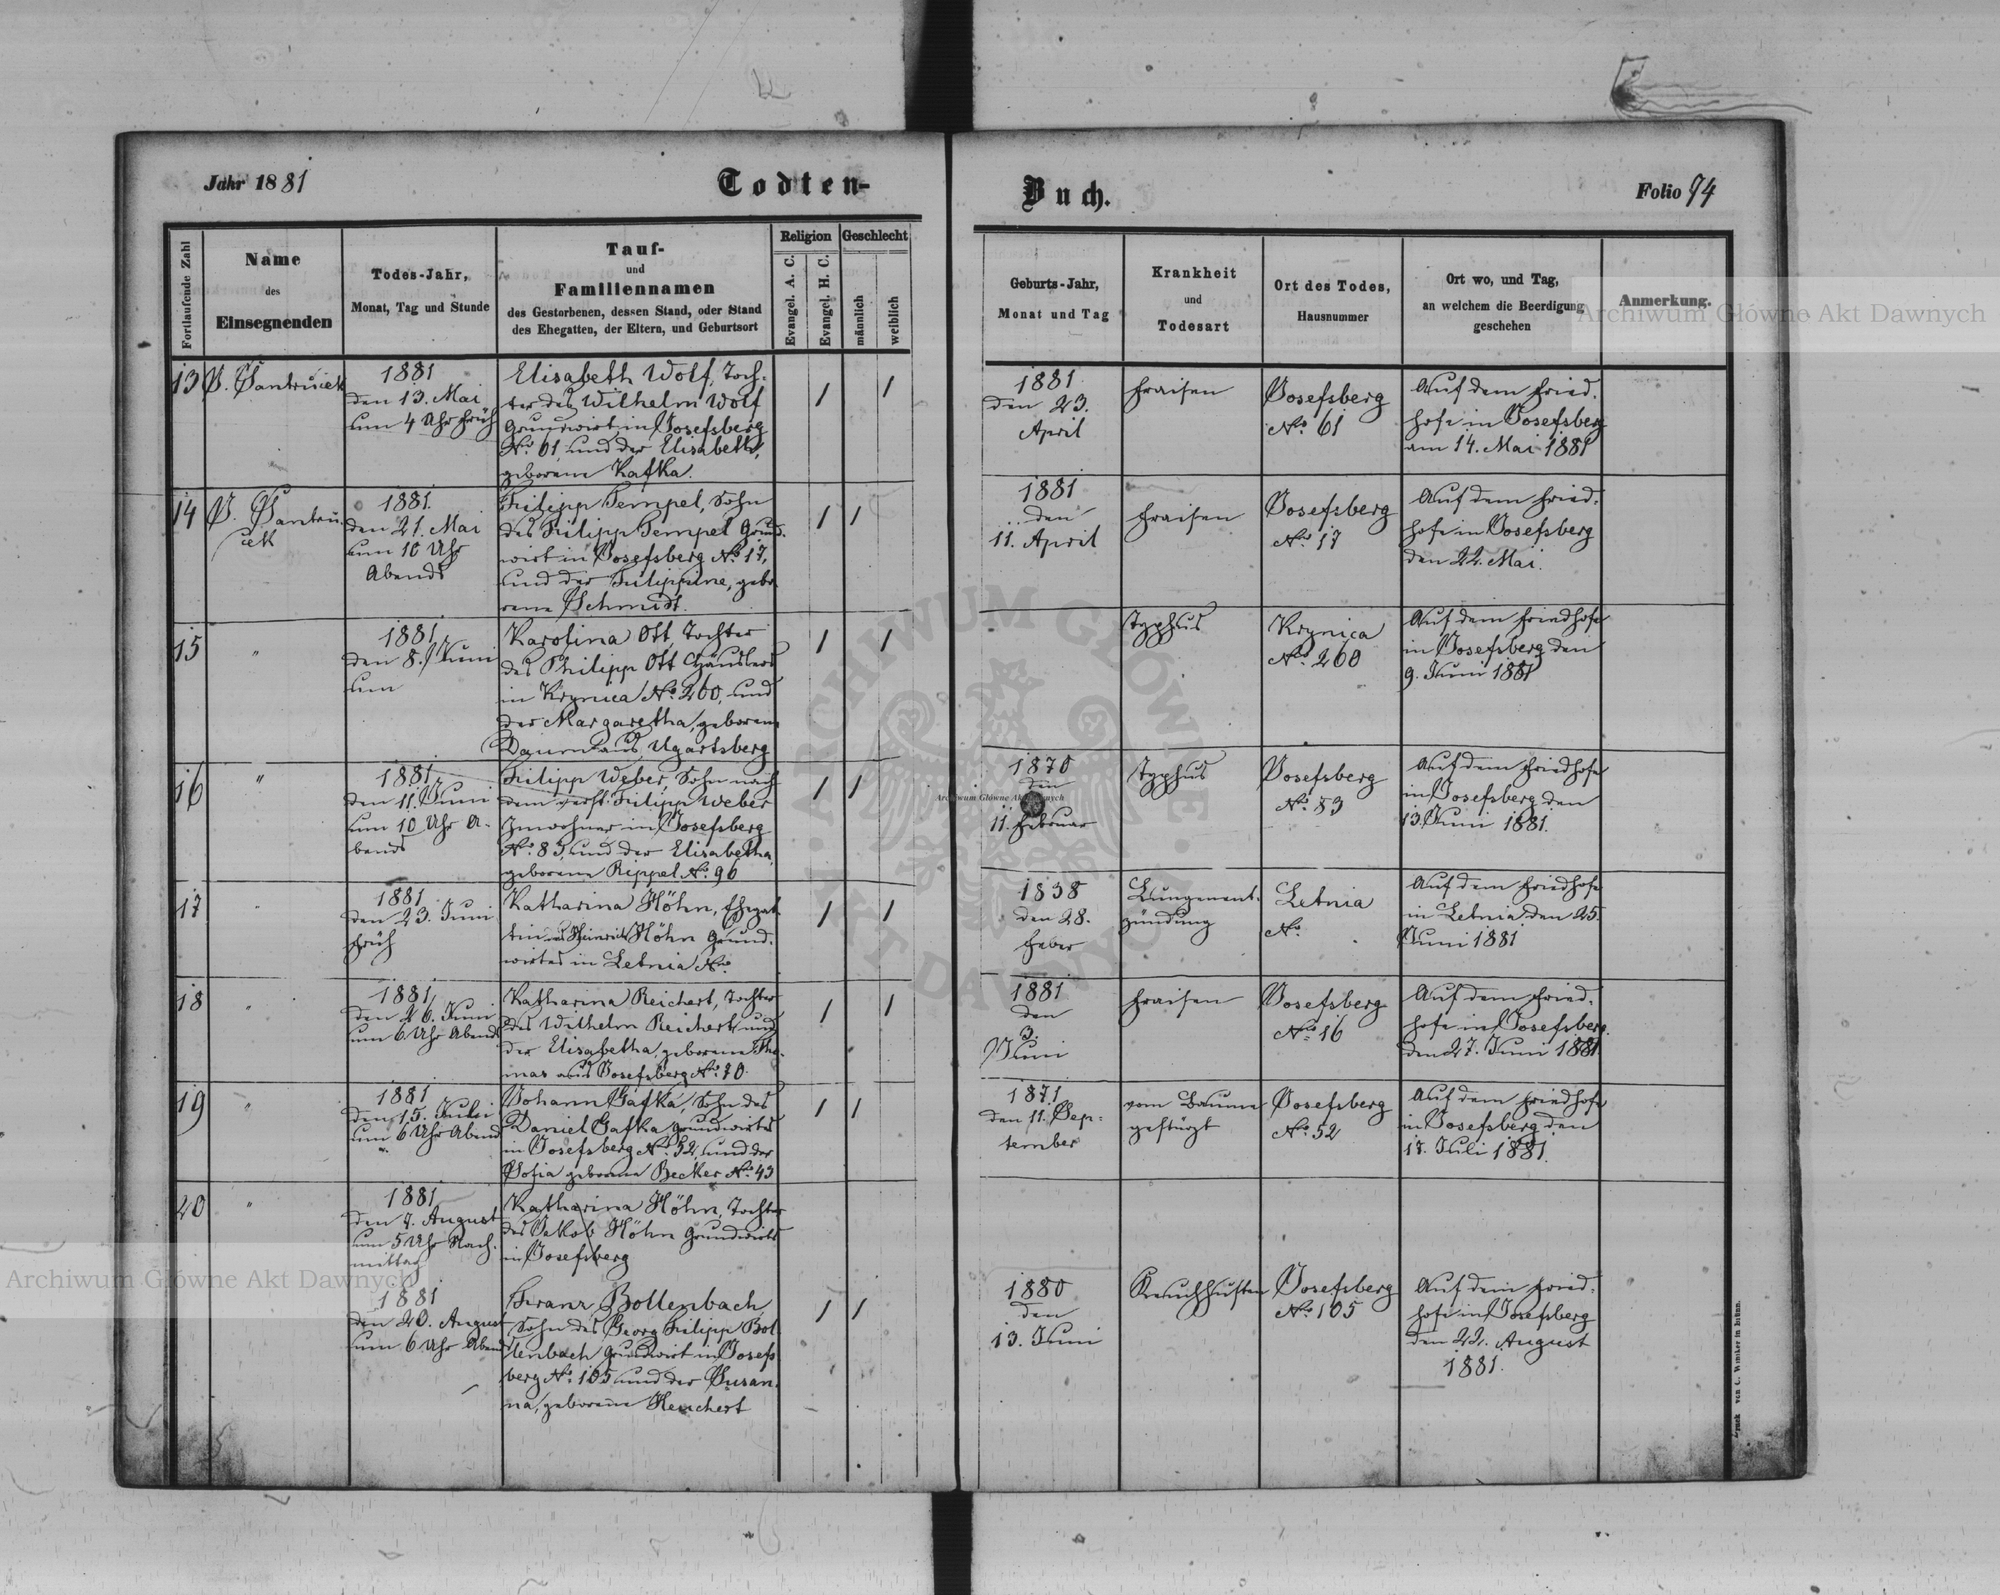 Jahr 1881
Todten-
Buch.
Folio 94
Fortlaufende Zahl
Name
des
Einsegnenden
Todes-Jahr,
Monat, Tag und Stunde
Tauf-
und
Familiennamen
des Gestorbenen, dessen Stand, oder Stand
des Ehegatten, der Eltern, und Geburtsort
Religion
Evangel. A. C.
Evangel. H. C.
Geschlecht
männlich
weiblich
Geburts-Jahr,
Monat und Tag
Krankheit
und
Todesart
Ort des Todes,
Hausnummer
Ort wo, und Tag,
an welchem die Beerdigung
geschehen
Anmerkung.
13
1881
den 13. Mai
um 4 Uhr früh
Elisabeth Wolf, Toch-
ter des Wilhelm Wolf
Grundwirt in Josefsberg
No. 61, und der Elisabeth,
geborene Kafka.
/
/
1881
den 23.
April
Fraisen
Josefsberg
No. 61
Auf dem Fried-
hofe in Josefsberg
am 14. Mai 1881
14
1881.
den 21. Mai
um 10 Uhr
Abends
Filipp Tempel, Sohn
des Filipp Tempel Grund-
wirt in Josefsberg No. 17,
und der Filippine, gebo-
rene Schmidt.
/
/
1881
den
11. April
Fraisen
Josefsberg
No. 17
Auf dem Fried-
hofe in Josefsberg
den 22. Mai.
15
"
1881
den 8. Juni
um
Karolina Ott, Tochter
des Philipp Ott
in Krynica No. 260, und
der Margaretha, geborene
Daum aus Ugartsberg
/
/
Typhus
Krynica
No. 260
Auf dem Friedhofe
in Josefsberg den
9. Juni 1881
16
"
1881
den 11. Juni
um 10 Uhr A-
bends
Filipp Weber, Sohn nach
dem verst. Filipp Weber
Inwohner in Josefsberg
No. 83, und der Elisabetha,
geborene Rippel No. 96
/
/
1870
den
11. Februar
Typhus
Josefsberg
No. 83
Auf dem Friedhofe
in Josefsberg den
13. Juni 1881.
17
"
1881
den 23. Juni
früh
Katharina Höhn, Ehegat-
tin des Heinrich Höhn Grund-
wirtes in Letnia No.
/
/
1838
den 28.
Feber
Lungenent-
zündung
Letnia
No.
Auf dem Friedhofe
in Letnia den 25.
Juni 1881
18
"
1881
den 26. Juni
um 6 Uhr Abends
Katharina Reichert, Tochter
des Wilhelm Reichert und
der Elisabetha, geborene Tho-
mas aus Josefsberg
/
/
1881
den
3.
Juni
Fraisen
Josefsberg
No. 16
Auf dem Fried-
hofe in Josefsberg
den 27. Juni 1881.
19
"
1881
den 15. Juli
um 6 Uhr Abend
Johann Gafka, Sohn des
Daniel Gafka Grundwirtes
in Josefsberg No. 52, und der
Sofia geborene Becker No. 43
/
/
1871
den 11. Sep-
tember
vom Baume
gestürzt
Josefsberg
No. 52
Auf dem Friedhofe
in Josefsberg den
17. Juli 1881.
20
"
1881
den 7. August
um 5 Uhr Nach-
mittag
Katharina Höhn, Tochter
des Jakob Höhn Grundwirts
in Josefsberg
1881
den 20. August
um 6 Uhr Abends
Franz Bollenbach,
Sohn des Georg Filipp Bol-
lenbach Grundwirt in Josefs-
berg No. 105 und der Susan-
na, geborene
/
/
1880
den
13. Juni
Keuchhusten
Josefsberg
No. 105
Auf dem Fried-
hofe in Josefsberg
den 22. August
1881.
Archiwum Główne Akt Dawnych
Archiwum Główne Akt Dawnych
Archiwum Główne Akt Dawnych
ARCHIWUM GŁÓWNE AKT DAWNYCH